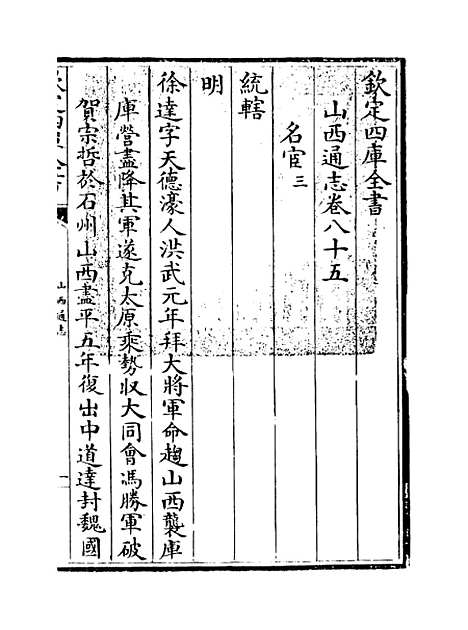 欽定四庫全書
山西通志卷八十五
名宦三
統轄
明
徐達字天德濠人洪武元年拜大將軍命趨山西襲庫
庫營盡降其軍遂克太原乘勢収大同會馮勝軍破
賀宗哲於石州山西盡平五年復出中道達封魏國
山西通志
一